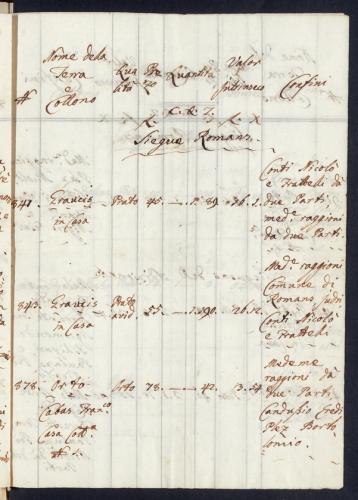 #
Nome dela
Terra
e
Collono
Qua
lità
Pre
zo
Quantità
Valor
Intrinseco
Confini
Siegue Romans.
841.
in Casa
Prato
45.
89.
26. 2.
Conti Nicolò
e Frattelli da
due Parti,
med.e raggioni
da due Parti
843.
in Casa
Prato
arid.
55.
190.
26. 12.
Med.e raggioni
Comune di
Romans, sudi
Conti Nicolò
e Frattelli
878.
Orto
e
Casa Coll.a
# 1.
Orto
78.
42.
3. 54
Medeme
raggioni da
due Parti
Candussio Eredi
Plez Borto
lomio.